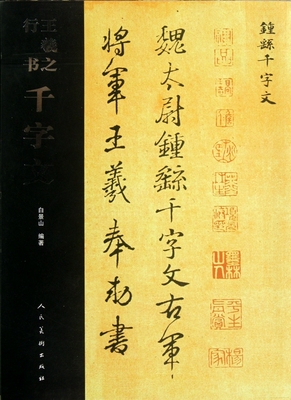 王羲之
行书
千字文
白景山 编著
人民美术出版社
鍾繇千字文
魏太尉鍾繇千字文右軍
將軍王羲奉勑書